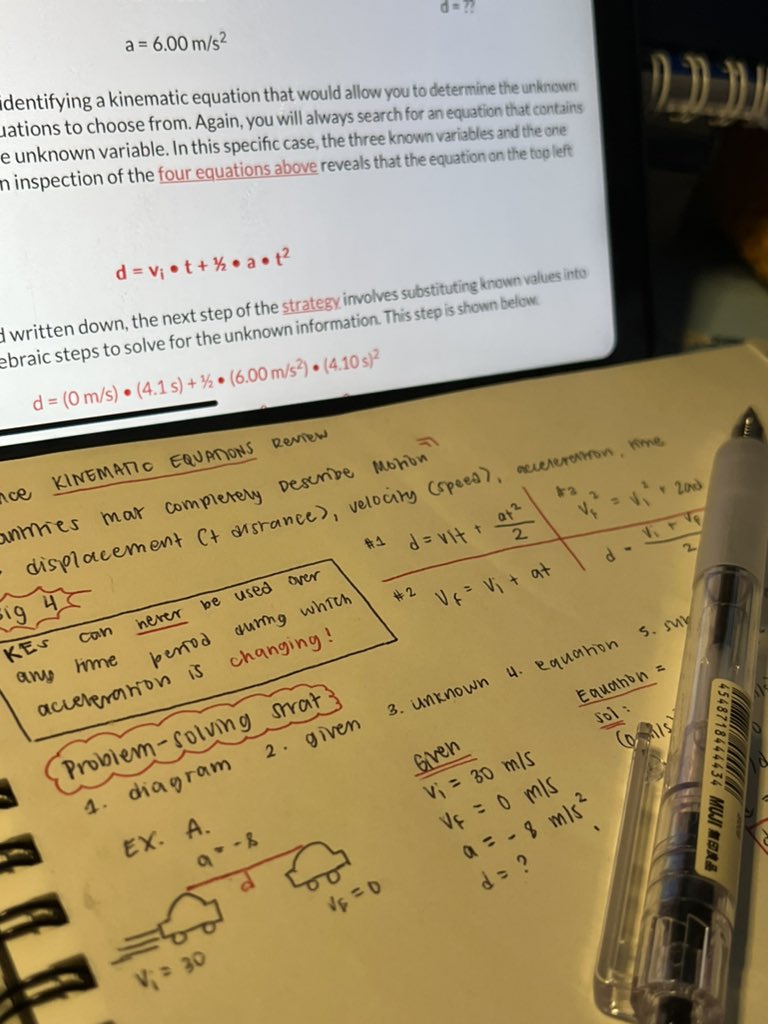 d = ??
a = 6.00 m/s²
identifying a kinematic equation that would allow you to determine the unknown
uations to choose from. Again, you will always search for an equation that contains
e unknown variable. In this specific case, the three known variables and the one
n inspection of the four equations above reveals that the equation on the top left
d = vᵢ • t + ½ • a • t²
d written down, the next step of the strategy involves substituting known values into
ebraic steps to solve for the unknown information. This step is shown below.
d = (0 m/s) • (4.1 s) + ½ • (6.00 m/s²) • (4.10 s)²
nce KINEMATIC EQUATIONS REVIEW
antities that completely Describe Motion
displacement (+ distance), velocity (speed), acceleration, time
#1 d = vit + at²/2
#3 Vf² = Vi² + 2ad
#2 Vf = Vi + at
d = Vi + Vf/2
Big 4
KEs can never be used over
any time period during which
acceleration is changing!
Problem-solving strat
1. diagram 2. given 3. unknown 4. equation 5. sub
EX. A.
a = -8
d
Vf = 0
Vi = 30
Given
Vi = 30 m/s
Vf = 0 m/s
a = -8 m/s²
d = ?
Equation =
Sol:
(0 m/s)
4548718444434 MUJI 無印良品